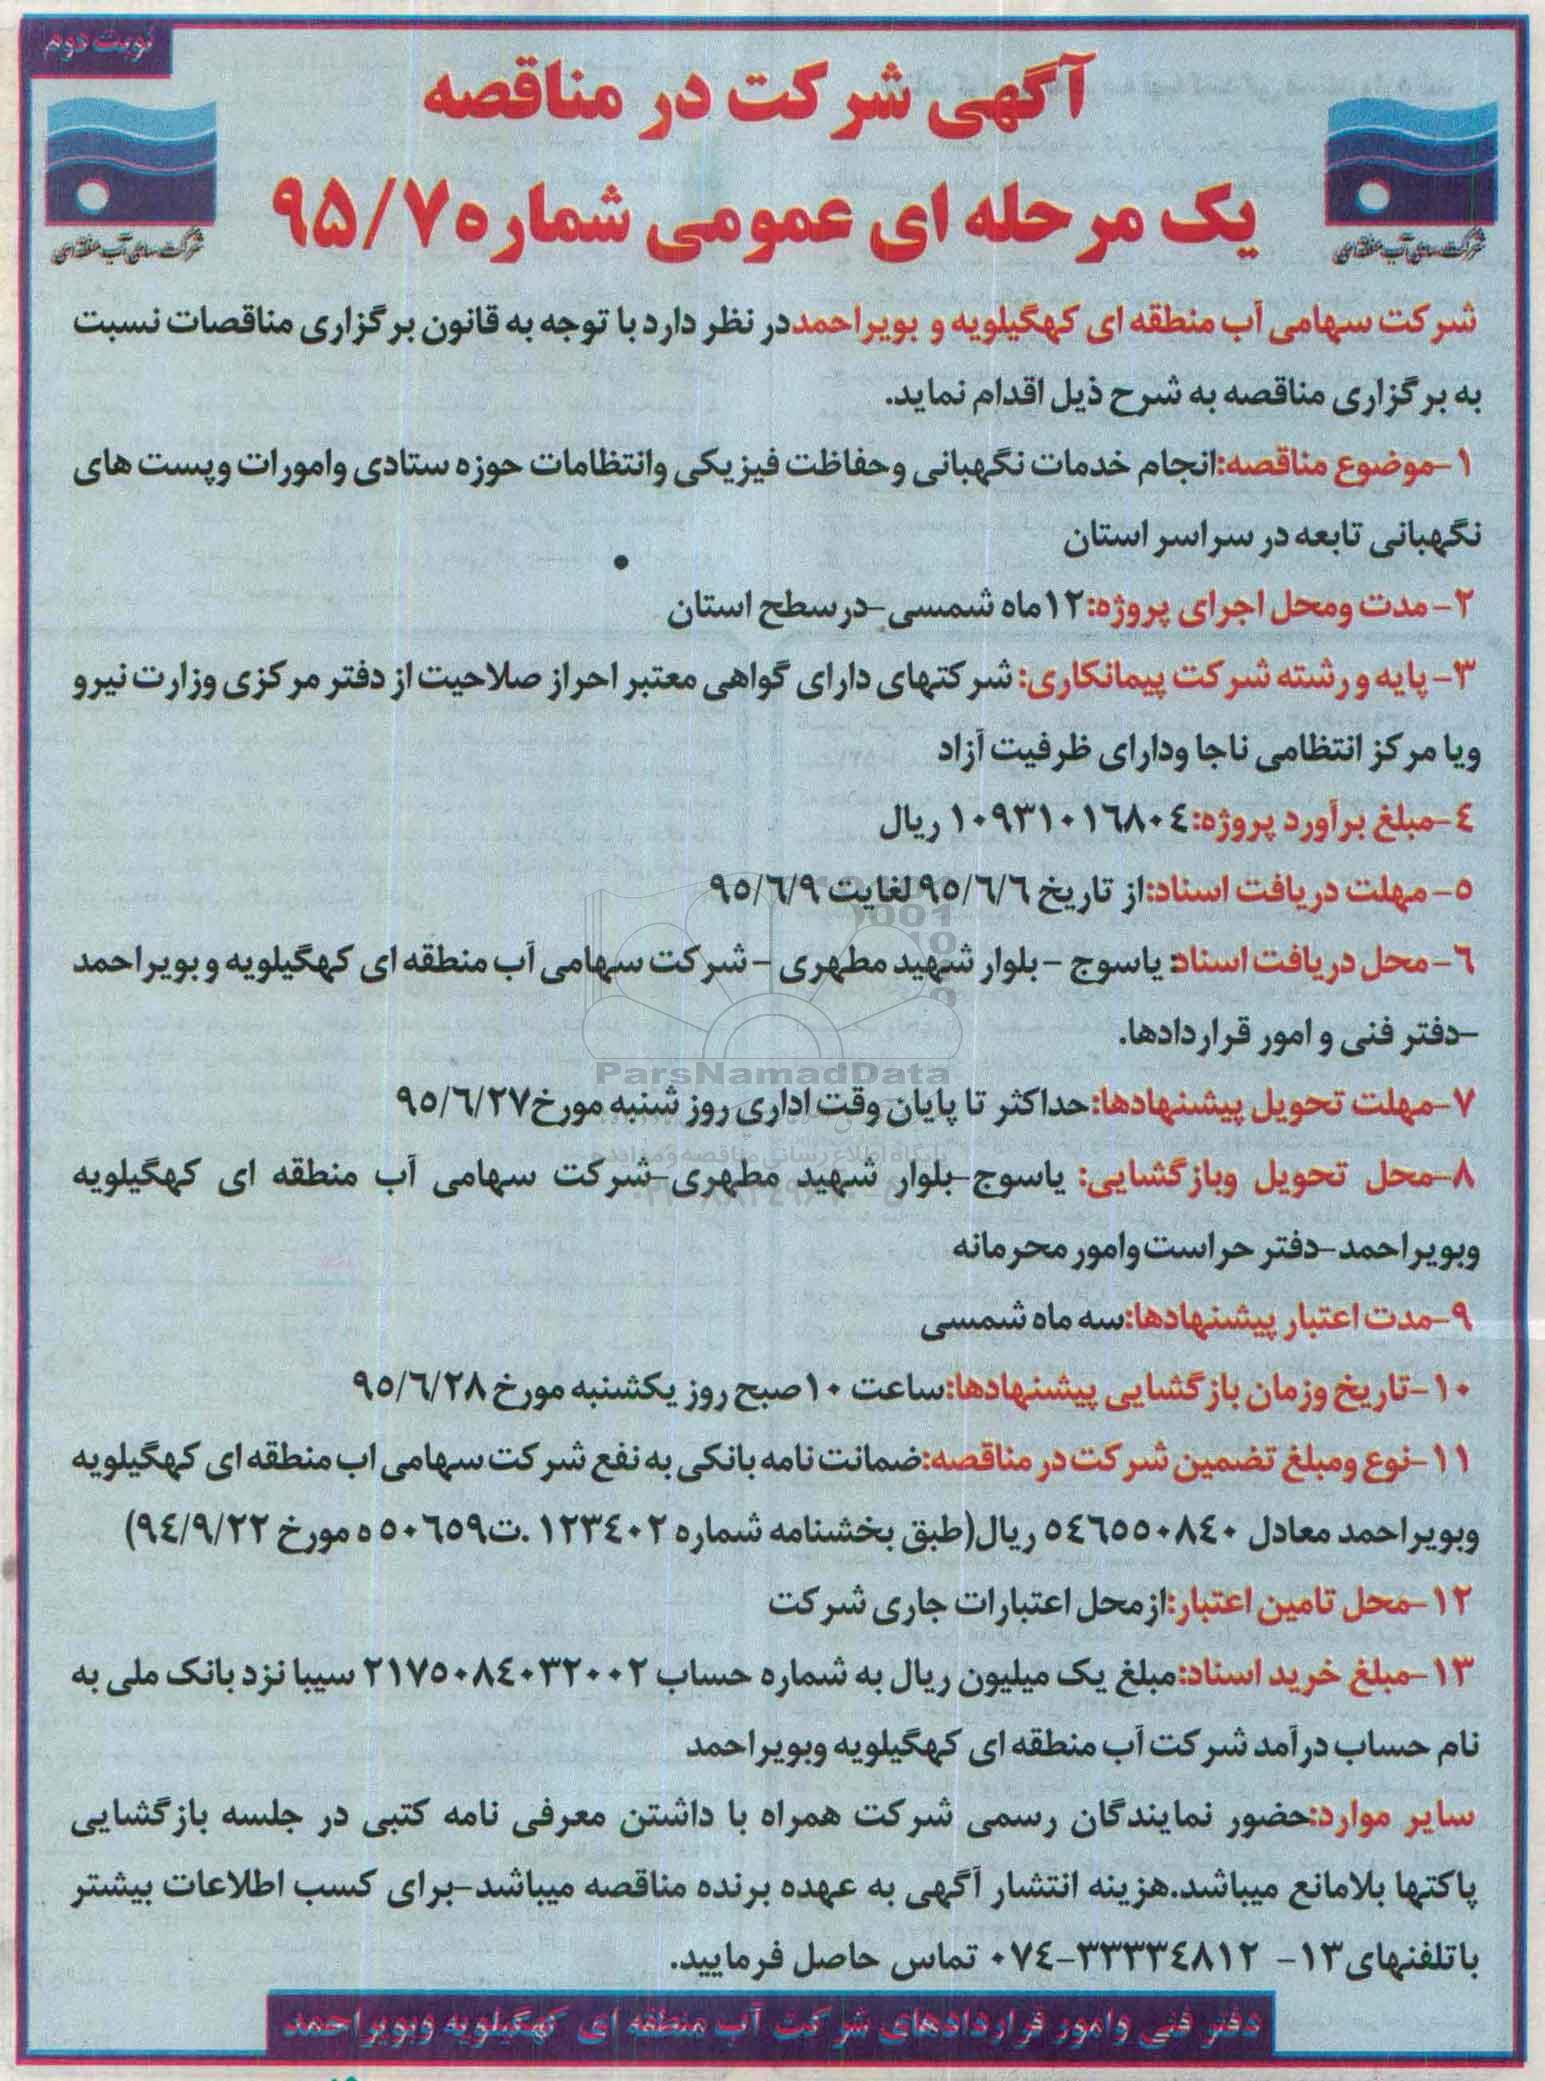 نوبت دوم
آگهی شرکت در مناقصه
یک مرحله ای عمومی شماره ۹۵/۷
شرکت سهامی آب منطقه ای
شرکت سهامی آب منطقه ای
شرکت سهامی آب منطقه ای کهگیلویه و بویراحمد در نظر دارد با توجه به قانون برگزاری مناقصات نسبت
به برگزاری مناقصه به شرح ذیل اقدام نماید.
۱-موضوع مناقصه:انجام خدمات نگهبانی وحفاظت فیزیکی وانتظامات حوزه ستادی وامورات وپست های
نگهبانی تابعه در سراسر استان
۲- مدت ومحل اجرای پروژه:۱۲ماه شمسی-درسطح استان
۳- پایه و رشته شرکت پیمانکاری: شرکتهای دارای گواهی معتبر احراز صلاحیت از دفتر مرکزی وزارت نیرو
ویا مرکز انتظامی ناجا ودارای ظرفیت آزاد
٤-مبلغ برآورد پروژه:۱۰۹۳۱۰۱٦۸۰٤ ریال
۵- مهلت دریافت اسناد:از تاریخ ۹۵/٦/٦ لغایت ۹۵/٦/۹
٦- محل دریافت اسناد: یاسوج - بلوار شهید مطهری - شرکت سهامی آب منطقه ای کهگیلویه و بویراحمد
-دفتر فنی و امور قراردادها.
ParsNamadData
۷-مهلت تحویل پیشنهادها:حداکثر تا پایان وقت اداری روز شنبه مورخ۹۵/٦/۲۷
پایگاه اطلاع رسانی مناقصه و مزایده
۸-محل تحویل وبازگشایی: یاسوج-بلوار شهید مطهری-شرکت سهامی آب منطقه ای کهگیلویه
وبویراحمد-دفتر حراست وامور محرمانه
۹-مدت اعتبار پیشنهادها:سه ماه شمسی
۱۰-تاریخ وزمان بازگشایی پیشنهادها:ساعت ۱۰صبح روز یکشنبه مورخ ۹۵/٦/۲۸
۱۱-نوع ومبلغ تضمین شرکت در مناقصه:ضمانت نامه بانکی به نفع شرکت سهامی اب منطقه ای کهگیلویه
وبویراحمد معادل ۵٤٦۵۵۰۸٤۰ ریال(طبق بخشنامه شماره ۱۲۳٤۰۲ .ت۵۰٦۵۹ ه مورخ ۹٤/۹/۲۲)
۱۲-محل تامین اعتبار:ازمحل اعتبارات جاری شرکت
۱۳-مبلغ خرید اسناد:مبلغ یک میلیون ریال به شماره حساب ۲۱۷۵۰۸٤۰۳۲۰۰۲ سیبا نزد بانک ملی به
نام حساب درآمد شرکت آب منطقه ای کهگیلویه وبویراحمد
سایر موارد:حضور نمایندگان رسمی شرکت همراه با داشتن معرفی نامه کتبی در جلسه بازگشایی
پاکتها بلامانع میباشد.هزینه انتشار آگهی به عهده برنده مناقصه میباشد-برای کسب اطلاعات بیشتر
باتلفنهای۱۳- ۰۷٤-۳۳۳۳٤۸۱۲ تماس حاصل فرمایید.
دفتر فنی وامور قراردادهای شرکت آب منطقه ای کهگیلویه وبویراحمد